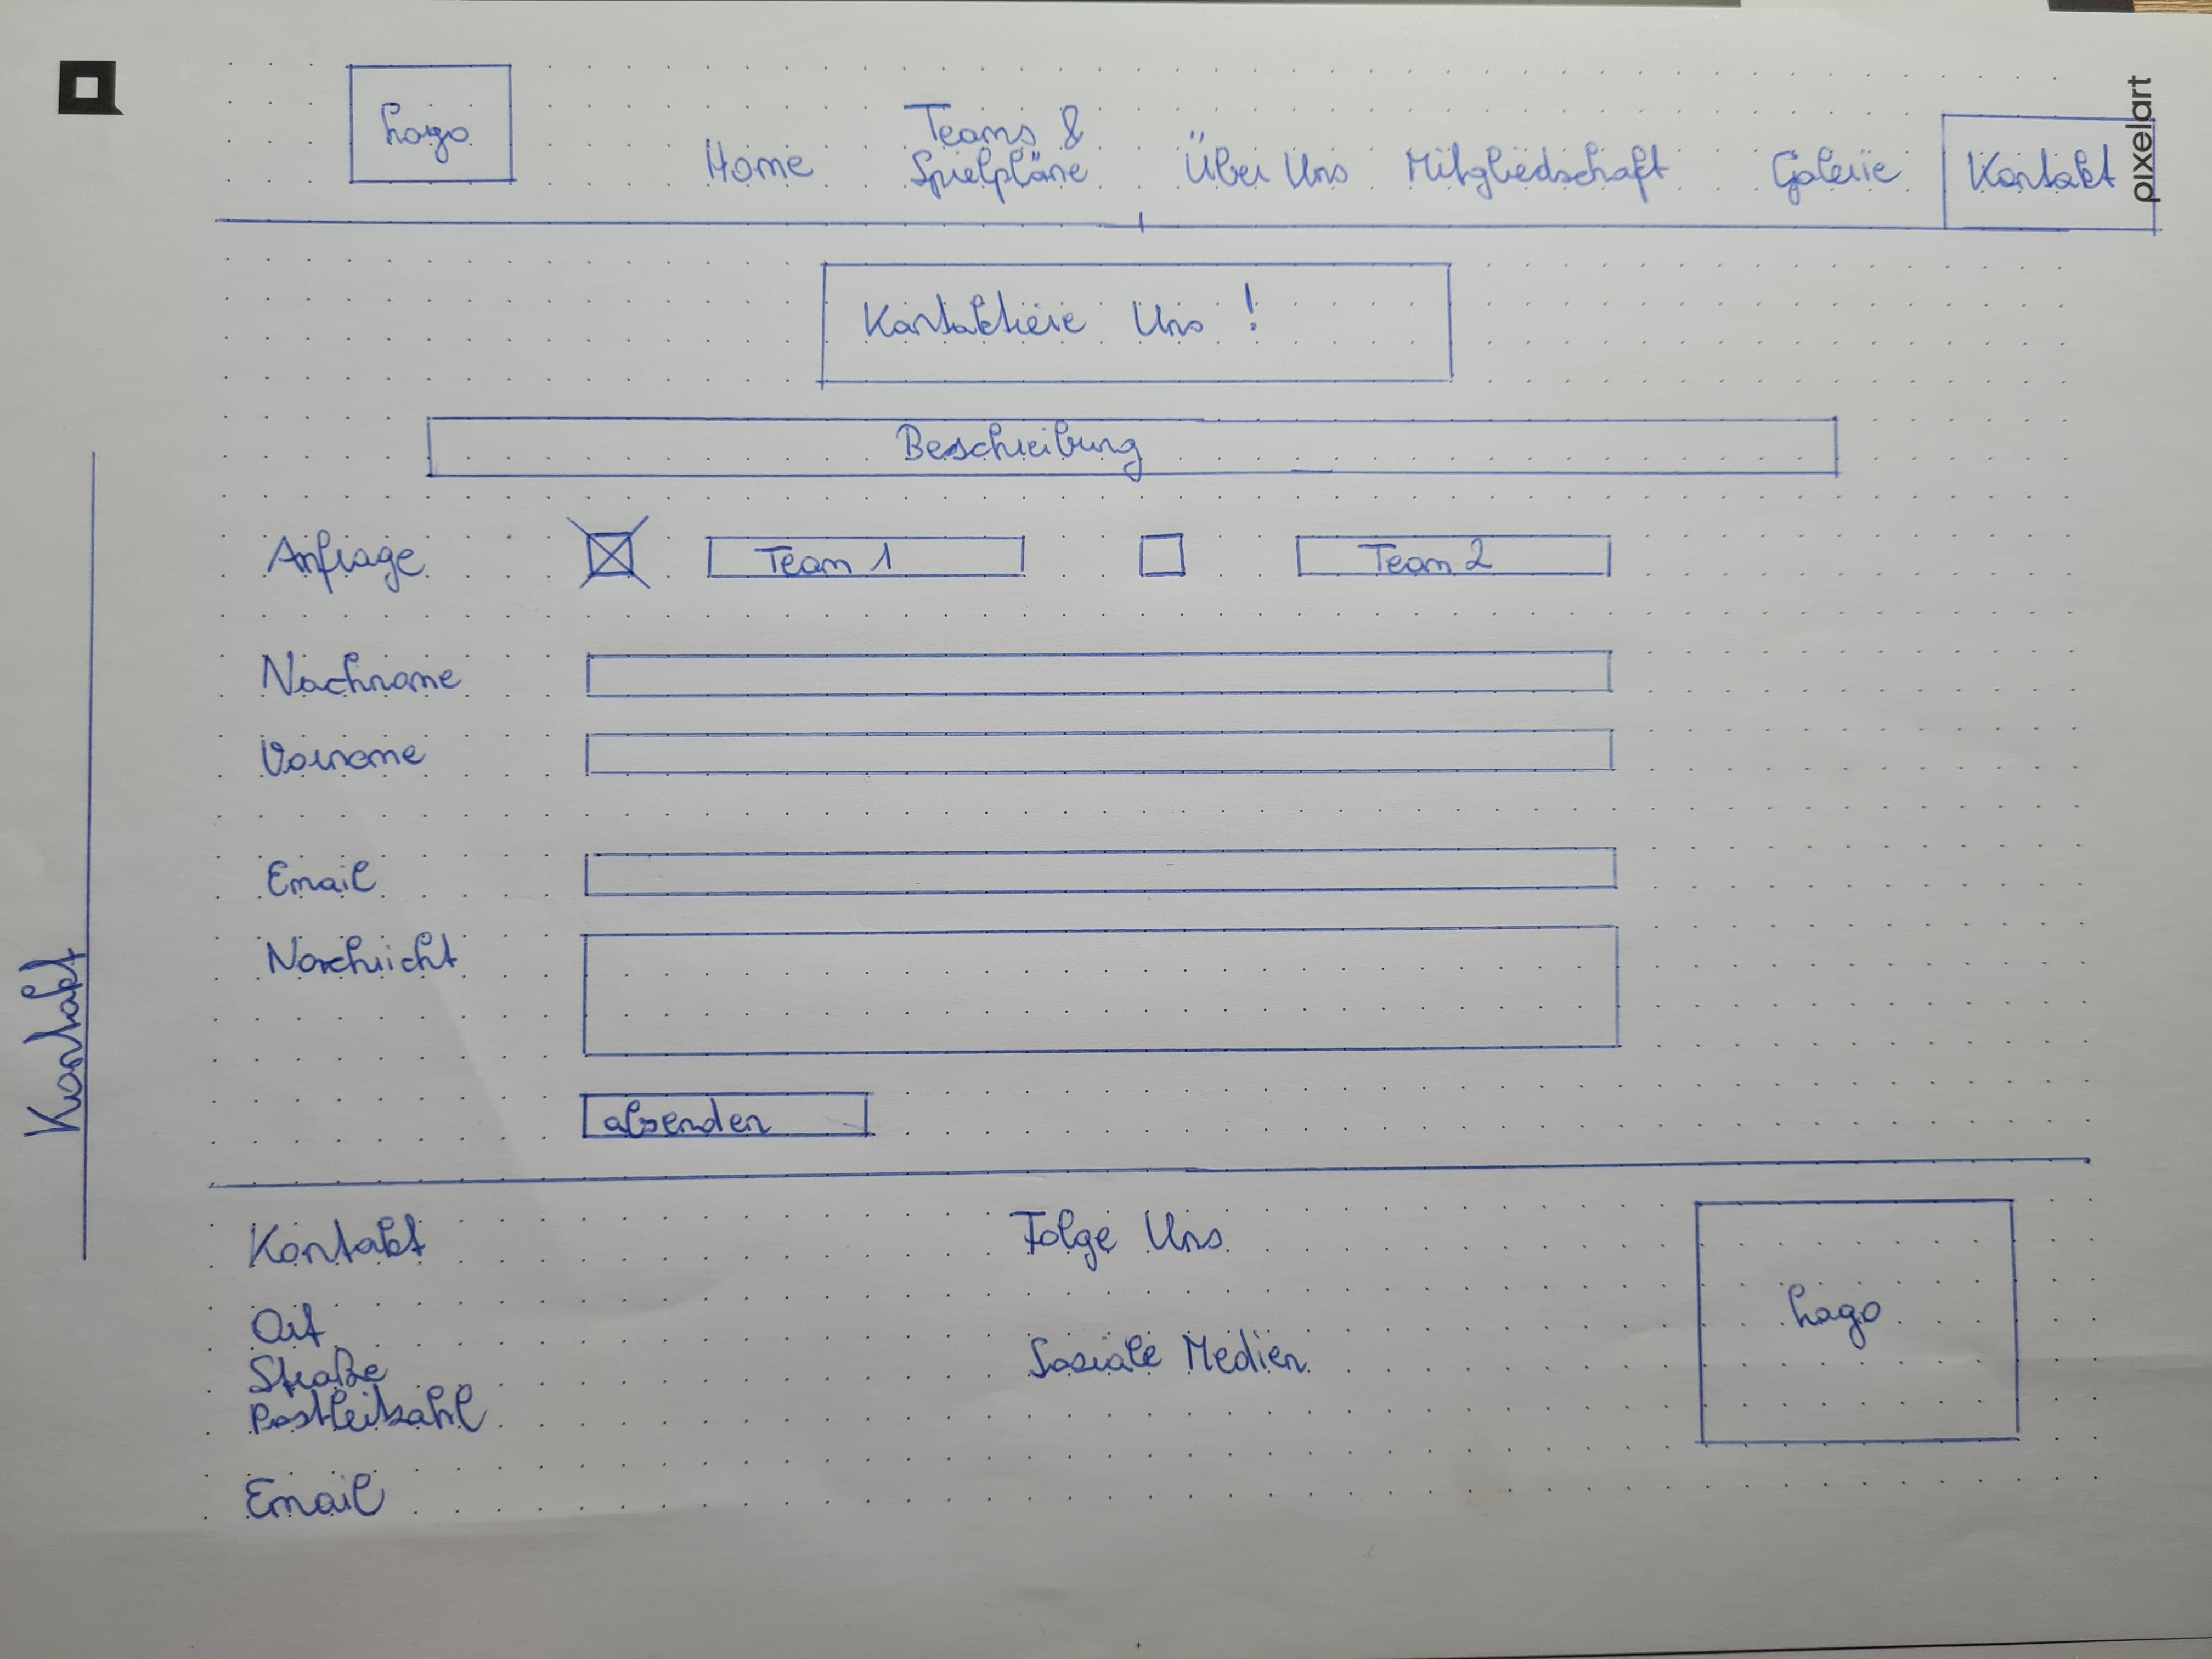 Logo
Home Teams & Spielpläne Über Uns Mitgliedschaft Galerie Kontakt
pixelart
Kontaktiere Uns !
Beschreibung
Anfrage Team 1 Team 2
Nachname
Vorname
Email
Nachricht
absenden
Kontakt
Kontakt Folge Uns
Logo
Ort
Straße Soziale Medien
Postleitzahl
Email